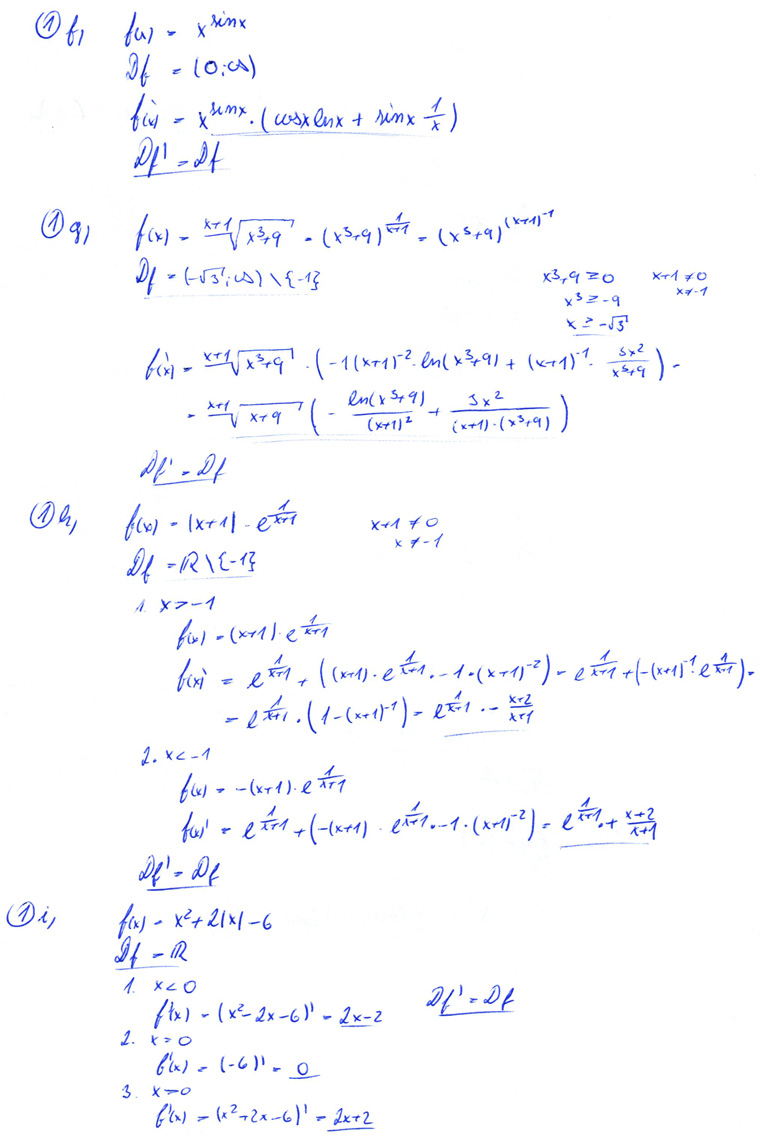 ① f, f(x) = x^sinx
Df = (0;∞)
f'(x) = x^sinx · (cosx lnx + sinx 1/x)
Df' = Df
① g, f(x) = ^(x+1)√(x³+9) = (x³+9)^(1/(x+1)) = (x³+9)^((x+1)^-1)
Df = (-√3;∞) \ {-1} x³+9 ≥ 0 x+1 ≠ 0
x³ ≥ -9 x ≠ -1
x ≥ -√3
f'(x) = ^(x+1)√(x³+9) · (-1(x+1)^-2 · ln(x³+9) + (x+1)^-1 · 3x²/(x³+9)) =
= ^(x+1)√(x+9) (- ln(x³+9)/(x+1)² + 3x²/((x+1)·(x³+9)))
Df' = Df
① h, f(x) = |x+1| · e^(1/(x+1)) x+1 ≠ 0
x ≠ -1
Df = R \ {-1}
1. x > -1
f(x) = (x+1) · e^(1/(x+1))
f(x)' = e^(1/(x+1)) + ((x+1) · e^(1/(x+1)) · -1 · (x+1)^-2) = e^(1/(x+1)) + (-(x+1)^-1 · e^(1/(x+1))) =
= e^(1/(x+1)) · (1-(x+1)^-1) = e^(1/(x+1)) · - (x+2)/(x+1)
2. x < -1
f(x) = -(x+1) · e^(1/(x+1))
f(x)' = e^(1/(x+1)) + (-(x+1) · e^(1/(x+1)) · -1 · (x+1)^-2) = e^(1/(x+1)) · + (x+2)/(x+1)
Df' = Df
① i, f(x) = x² + 2|x| - 6
Df = R
1. x < 0
f'(x) = (x²-2x-6)' = 2x-2 Df' = Df
2. x = 0
f'(x) = (-6)' = 0
3. x > 0
f'(x) = (x²+2x-6)' = 2x+2